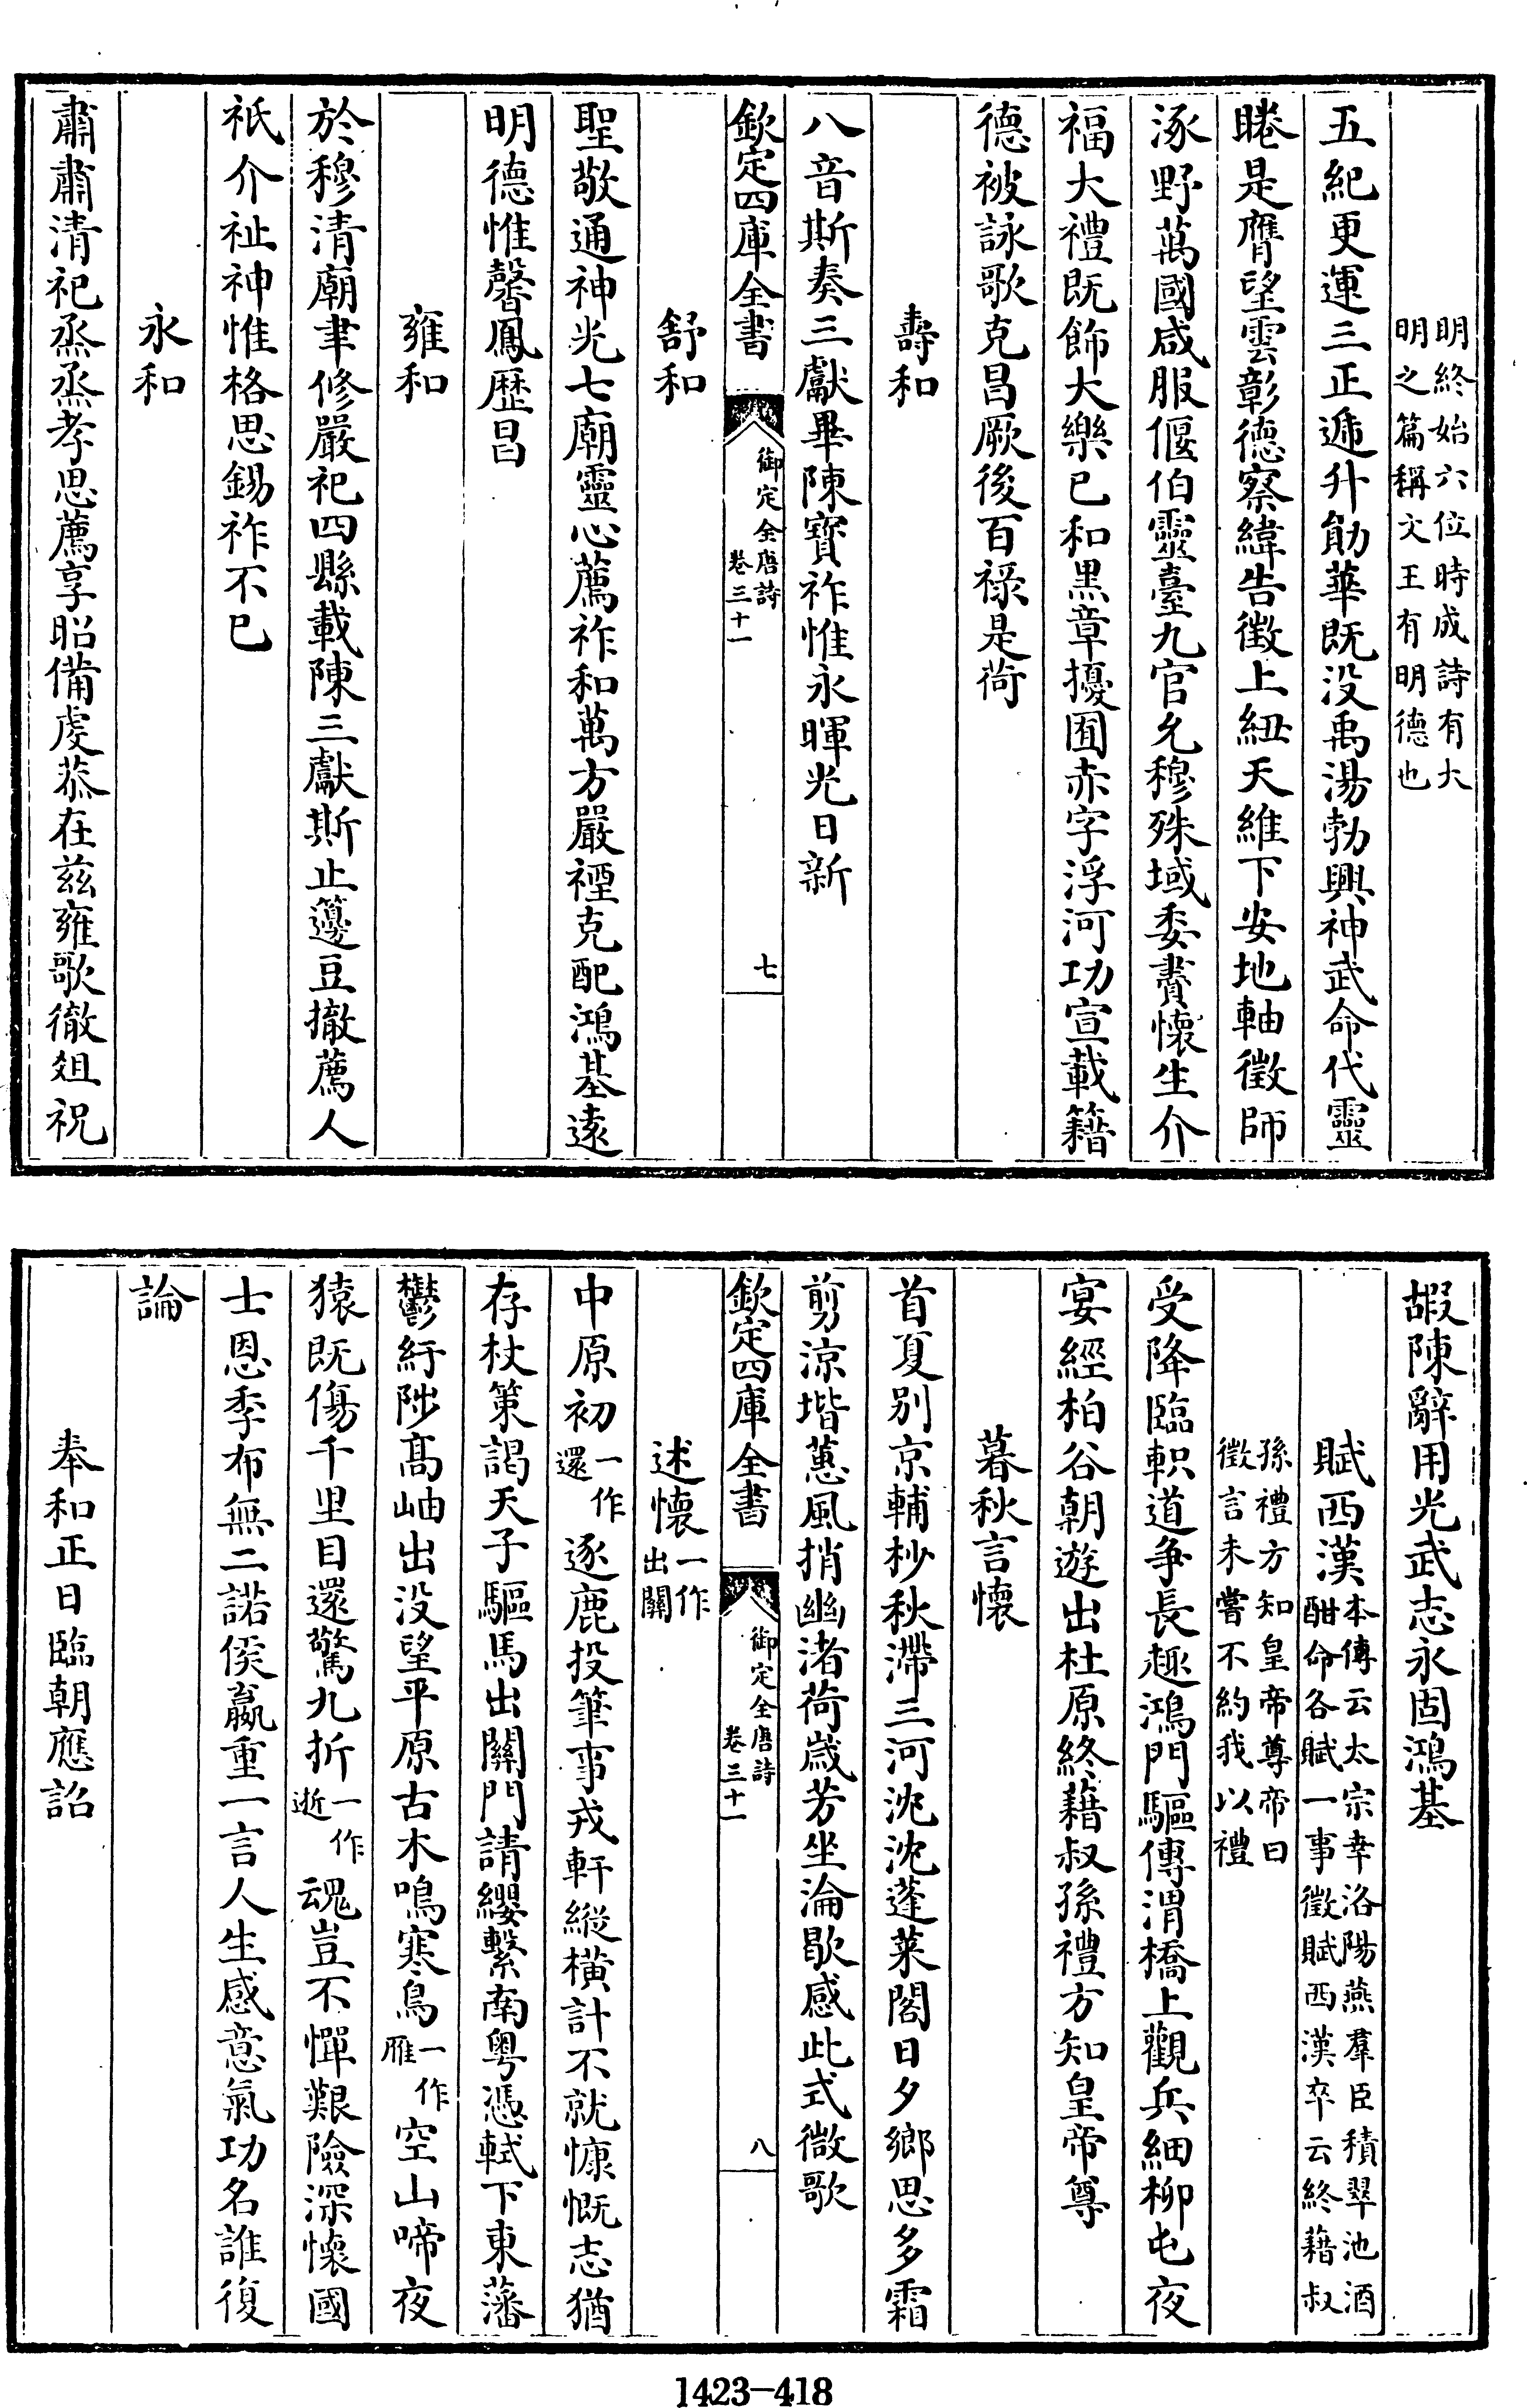 明終始六位時成詩有大
明之篇稱文王有明德也
五紀更運三正遞升勛華既没禹湯勃興神武命代靈
睠是膺望雲彰德察緯告徵上紐天維下安地軸徵師
涿野萬國咸服偃伯靈臺九官允穆殊域委賮懷生介
福大禮既飾大樂已和黑章擾囿赤字浮河功宣載籍
德被詠歌克昌厥後百禄是荷
壽和
八音斯奏三獻畢陳寳祚惟永暉光日新
欽定四庫全書
御定全唐詩
卷三十一
七
舒和
聖敬通神光七廟靈心薦祚和萬方嚴禋克配鴻基逺
明德惟馨鳳歴昌
雍和
於穆清廟聿修嚴祀四縣載陳三獻斯止籩豆撤薦人
祇介祉神惟格思錫祚不已
永和
肅肅清祀烝烝孝思薦享昭備虔恭在兹雍歌徹俎祝
嘏陳辭用光武志永固鴻基
賦西漢
本傳云太宗幸洛陽燕羣臣積翠池酒
酣命各賦一事徵賦西漢卒云終藉叔
孫禮方知皇帝尊帝曰
徵言未嘗不約我以禮
受降臨軹道争長趣鴻門驅傳渭橋上觀兵細柳屯夜
宴經柏谷朝遊出杜原終藉叔孫禮方知皇帝尊
暮秋言懷
首夏别京輔杪秋滯三河沈沈蓬萊閣日夕鄉思多霜
剪涼堦蕙風捎幽渚荷歳芳坐淪歇感此式微歌
欽定四庫全書
御定全唐詩
卷三十一
八
述懷一作出關
中原初一作還逐鹿投筆事戎軒縱横計不就慷慨志猶
存杖策謁天子驅馬出關門請纓繫南粤憑軾下東藩
鬱紆陟髙岫出没望平原古木鳴寒鳥一作雁空山啼夜
猿既傷千里目還驚九折一作逝魂豈不憚艱險深懷國
士恩季布無二諾侯嬴重一言人生感意氣功名誰復
論
奉和正日臨朝應詔
1423-418